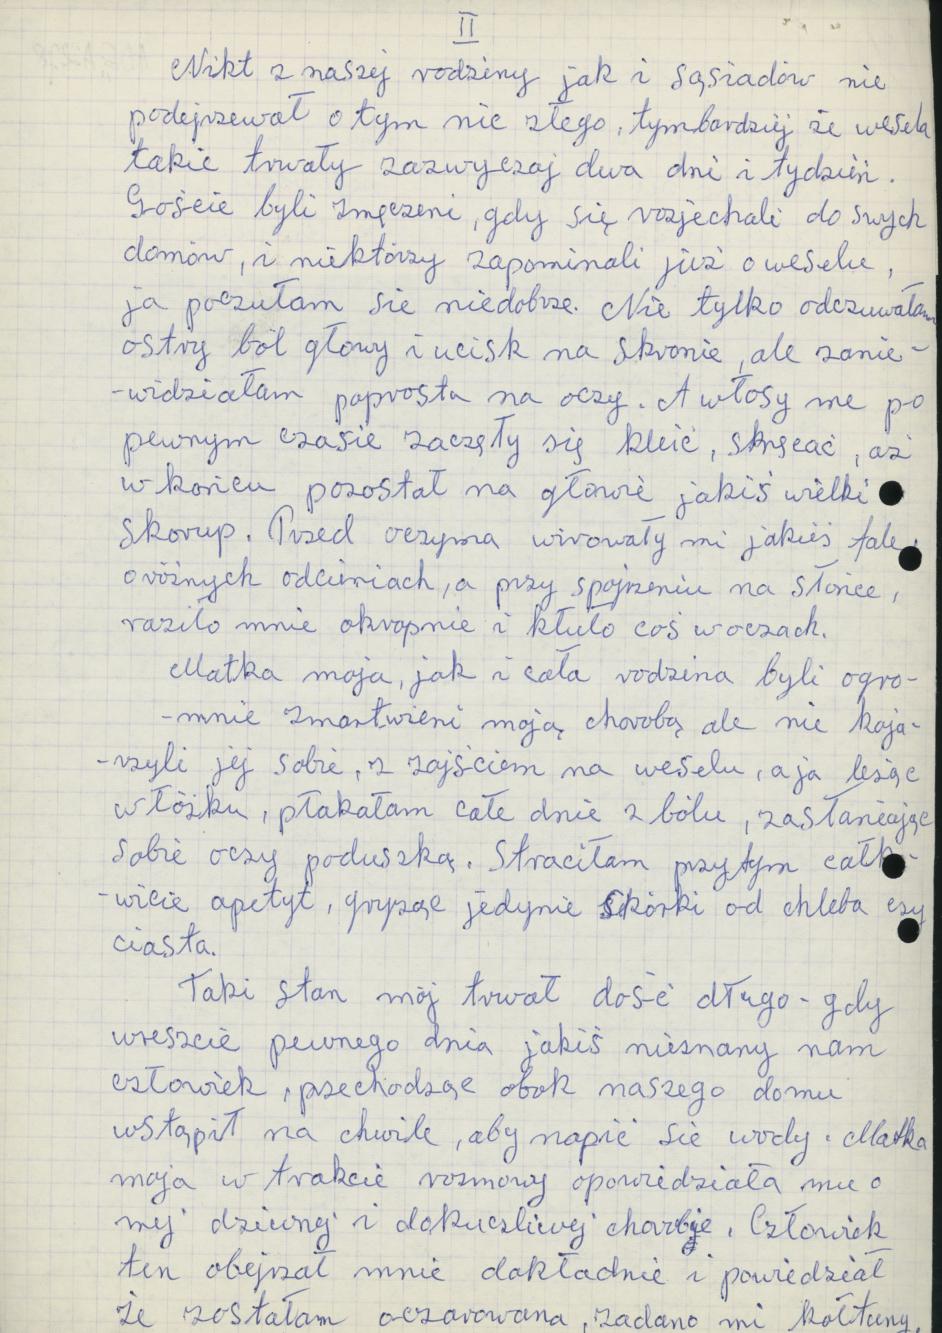 II
Nikt z naszej rodziny jak i sąsiadów nie
podejrzewał o tym nic złego, tymbardziej że wesela
takie trwały zazwyczaj dwa dni i tydzień.
Goście byli zmęczeni, gdy się rozjechali do swych
domów, i niektórzy zapominali już o weselu,
ja poczułam się niedobrze. Nie tylko odczuwałam
ostry ból głowy i ucisk na skronie, ale zanie-
-widziałam poprostu na oczy. A włosy me po
pewnym czasie zaczęły się kleić, skręcać, aż
w końcu pozostał na głowie jakiś wielki
skorup. Przed oczyma wirowały mi jakieś fale
o różnych odcieniach, a przy spojrzeniu na słońce,
raziło mnie okropnie i kłuło coś w oczach.
Matka moja, jak i cała rodzina byli ogro-
-mnie zmartwieni moją chorobą ale nie koja-
-rzyli jej sobie, z zajściem na weselu, a ja leżąc
w łóżku, płakałam całe dnie z bólu, zasłaniając
sobie oczy poduszką. Straciłam przytym całko-
-wicie apetyt, gryząc jedynie skórki od chleba czy
ciasta.
Taki stan mój trwał dość długo - gdy
wreszcie pewnego dnia jakiś nieznany nam
człowiek, przechodząc obok naszego domu
wstąpił na chwile, aby napić sie wody. Matka
moja w trakcie rozmowy opowiedziała mu o
mej dziwnej i dokuczliwej chorobie. Człowiek
ten obejrzał mnie dokładnie i powiedział
że zostałam oczarowana, zadano mi kołtuny.